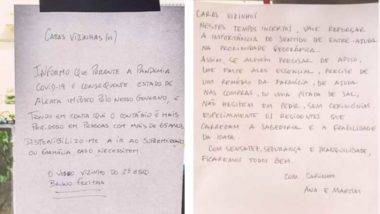 CAROS VIZINHOS(AS)
INFORMO QUE PERANTE A PANDEMIA
COVID-19 E CONSEQUENTE ESTADO DE
ALERTA IMPOSTO PELO NOSSO GOVERNO, E
TENDO EM CONTA QUE O CONTÁGIO É MAIS
PERIGOSO EM PESSOAS COM MAIS DE 65 ANOS,
DISPONIBILIZO-ME A IR AO SUPERMERCADO
OU FARMÁCIA CASO NECESSITEM.
O VOSSO VIZINHO DO 2º ESQ
BRUNO FREITAS
CAROS VIZINHOS
NESTES TEMPOS INCERTOS, VALE REFORÇAR
A IMPORTÂNCIA DO SENTIDO DE ENTRE-AJUDA
NA PROXIMIDADE GEOGRÁFICA.
ASSIM, SE ALGUÉM PRECISAR DE APOIO,
LHE FALTE ALGO ESSENCIAL, PRECISE DE
UM REMÉDIO DA FARMÁCIA, DE AJUDA
NAS COMPRAS, OU UMA PITADA DE SAL,
NÃO HESITEM EM PEDIR, SEM CERIMÓNIAS
ESPECIALMENTE OS RESIDENTES QUE
CARREGAM A SABEDORIA E A FRAGILIDADE DA
IDADE.
COM SENSATEZ, SEGURANÇA E TRANQUILIDADE,
FICAREMOS TODOS BEM.
COM CARINHO
ANA E MARTIM